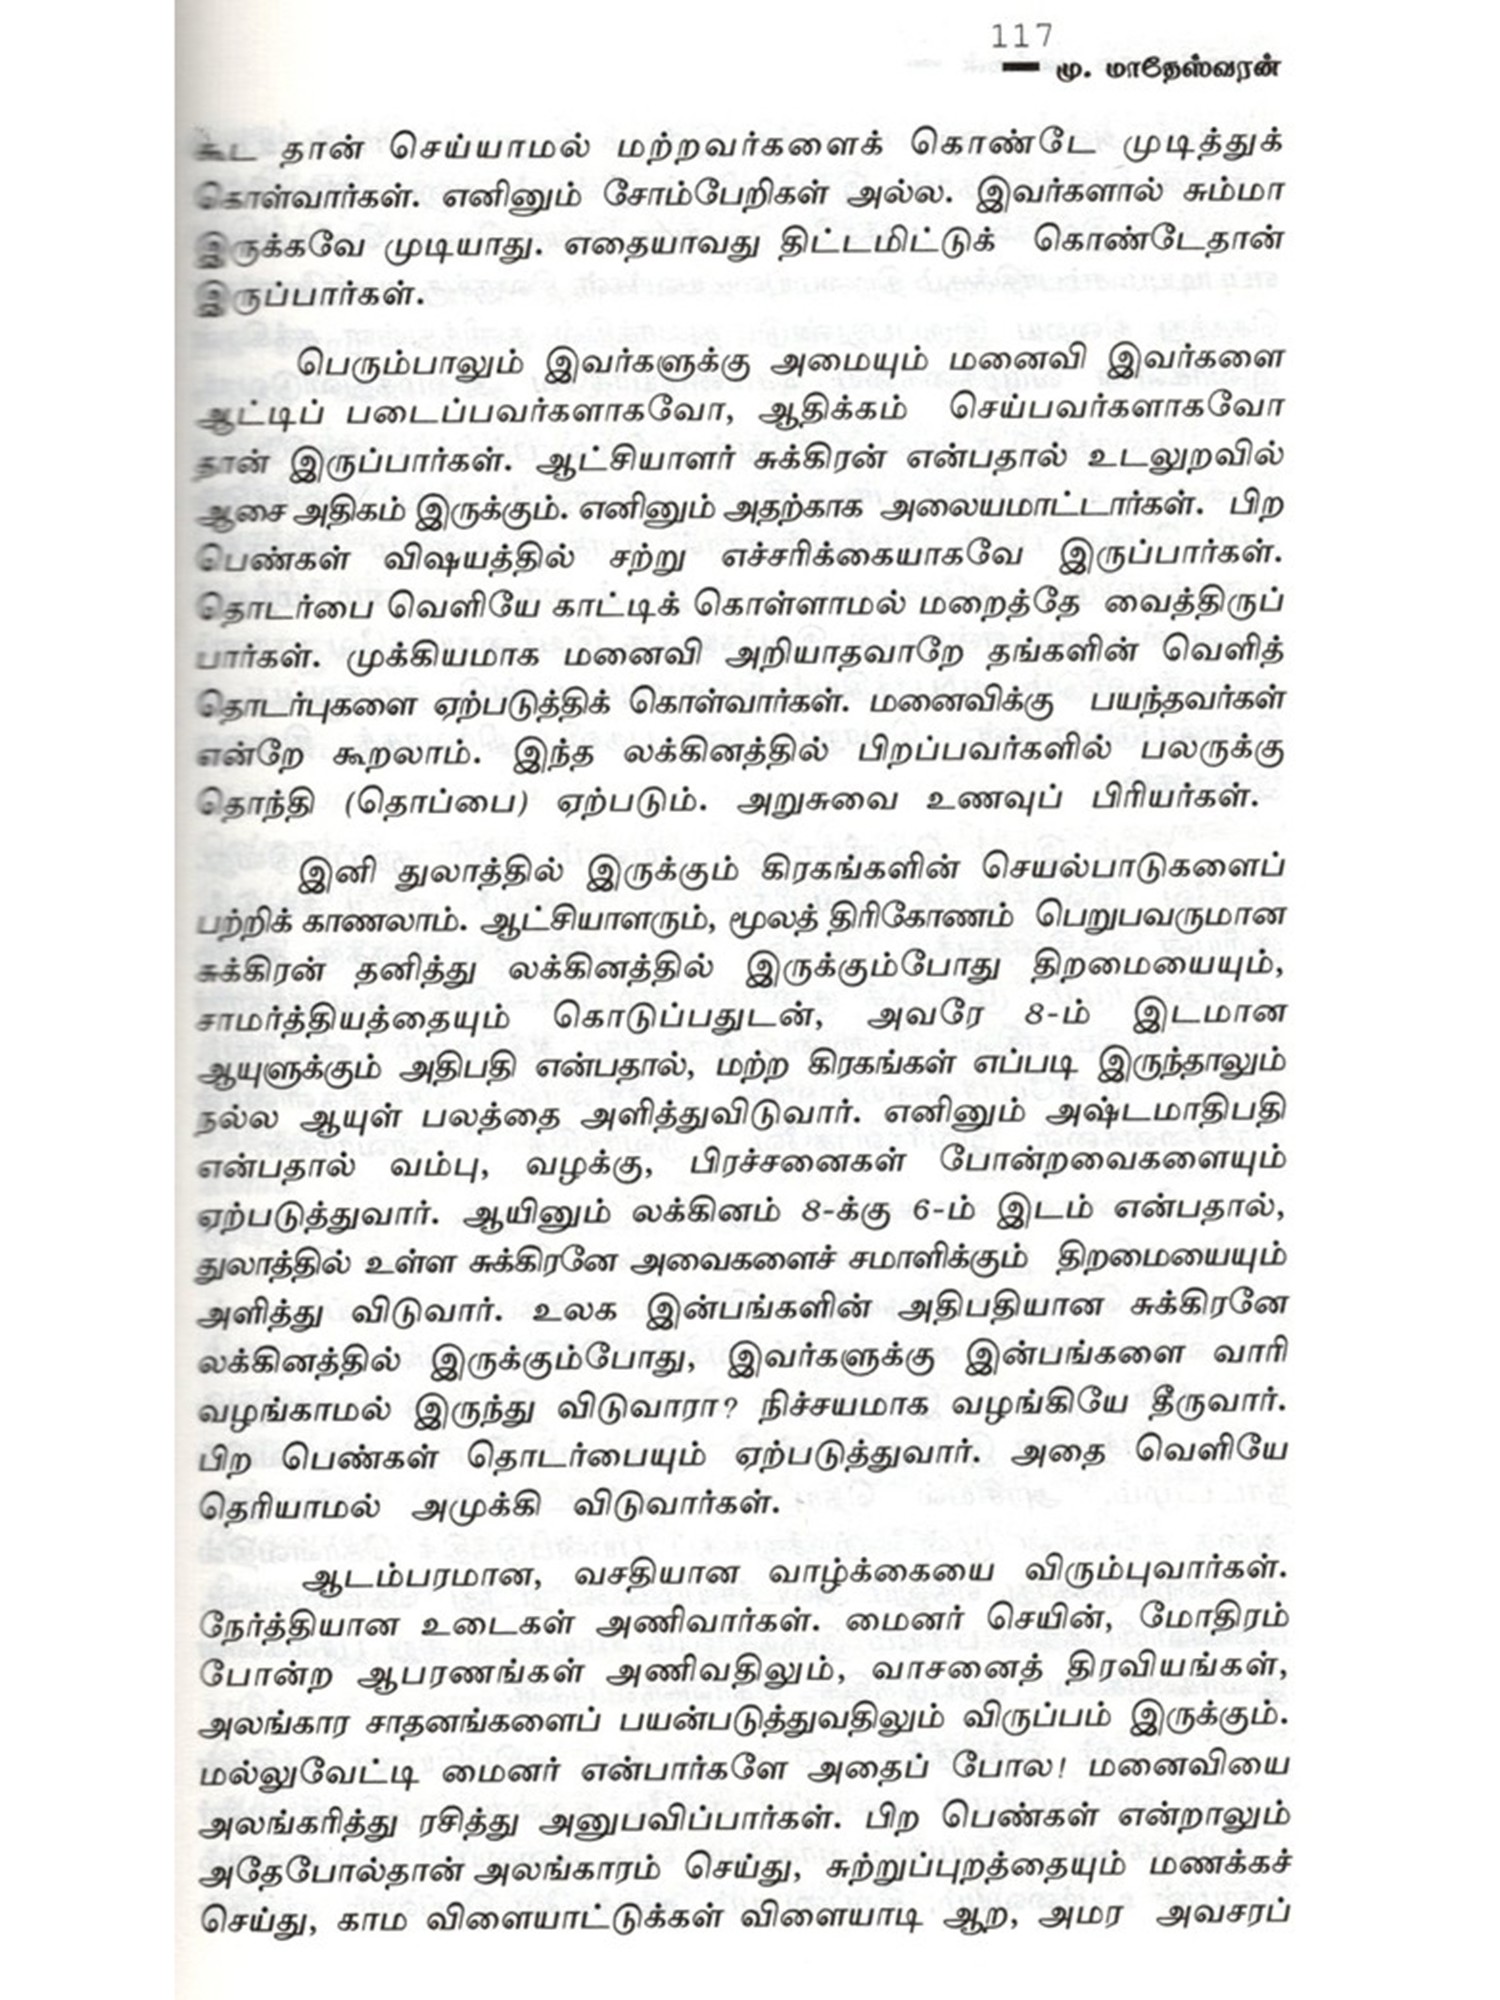 117
மு. மாதேஸ்வரன்
கூட தான் செய்யாமல் மற்றவர்களைக் கொண்டே முடித்துக்
கொள்வார்கள். எனினும் சோம்பேறிகள் அல்ல. இவர்களால் சும்மா
இருக்கவே முடியாது. எதையாவது திட்டமிட்டுக் கொண்டேதான்
இருப்பார்கள்.
பெரும்பாலும் இவர்களுக்கு அமையும் மனைவி இவர்களை
ஆட்டிப் படைப்பவர்களாகவோ, ஆதிக்கம் செய்பவர்களாகவோ
தான் இருப்பார்கள். ஆட்சியாளர் சுக்கிரன் என்பதால் உடலுறவில்
ஆசை அதிகம் இருக்கும். எனினும் அதற்காக அலையமாட்டார்கள். பிற
பெண்கள் விஷயத்தில் சற்று எச்சரிக்கையாகவே இருப்பார்கள்.
தொடர்பை வெளியே காட்டிக் கொள்ளாமல் மறைத்தே வைத்திருப்
பார்கள். முக்கியமாக மனைவி அறியாதவாறே தங்களின் வெளித்
தொடர்புகளை ஏற்படுத்திக் கொள்வார்கள். மனைவிக்கு பயந்தவர்கள்
என்றே கூறலாம். இந்த லக்கினத்தில் பிறப்பவர்களில் பலருக்கு
தொந்தி (தொப்பை) ஏற்படும். அறுசுவை உணவுப் பிரியர்கள்.
இனி துலாத்தில் இருக்கும் கிரகங்களின் செயல்பாடுகளைப்
பற்றிக் காணலாம். ஆட்சியாளரும், மூலத் திரிகோணம் பெறுபவருமான
சுக்கிரன் தனித்து லக்கினத்தில் இருக்கும்போது திறமையையும்,
சாமர்த்தியத்தையும் கொடுப்பதுடன், அவரே 8-ம் இடமான
ஆயுளுக்கும் அதிபதி என்பதால், மற்ற கிரகங்கள் எப்படி இருந்தாலும்
நல்ல ஆயுள் பலத்தை அளித்துவிடுவார். எனினும் அஷ்டமாதிபதி
என்பதால் வம்பு, வழக்கு, பிரச்சனைகள் போன்றவைகளையும்
ஏற்படுத்துவார். ஆயினும் லக்கினம் 8-க்கு 6-ம் இடம் என்பதால்,
துலாத்தில் உள்ள சுக்கிரனே அவைகளைச் சமாளிக்கும் திறமையையும்
அளித்து விடுவார். உலக இன்பங்களின் அதிபதியான சுக்கிரனே
லக்கினத்தில் இருக்கும்போது, இவர்களுக்கு இன்பங்களை வாரி
வழங்காமல் இருந்து விடுவாரா? நிச்சயமாக வழங்கியே தீருவார்.
பிற பெண்கள் தொடர்பையும் ஏற்படுத்துவார். அதை வெளியே
தெரியாமல் அமுக்கி விடுவார்கள்.
ஆடம்பரமான, வசதியான வாழ்க்கையை விரும்புவார்கள்.
நேர்த்தியான உடைகள் அணிவார்கள். மைனர் செயின், மோதிரம்
போன்ற ஆபரணங்கள் அணிவதிலும், வாசனைத் திரவியங்கள்,
அலங்கார சாதனங்களைப் பயன்படுத்துவதிலும் விருப்பம் இருக்கும்.
மல்லுவேட்டி மைனர் என்பார்களே அதைப் போல! மனைவியை
அலங்கரித்து ரசித்து அனுபவிப்பார்கள். பிற பெண்கள் என்றாலும்
அதேபோல்தான் அலங்காரம் செய்து, சுற்றுப்புறத்தையும் மணக்கச்
செய்து, காம விளையாட்டுக்கள் விளையாடி ஆற, அமர அவசரப்